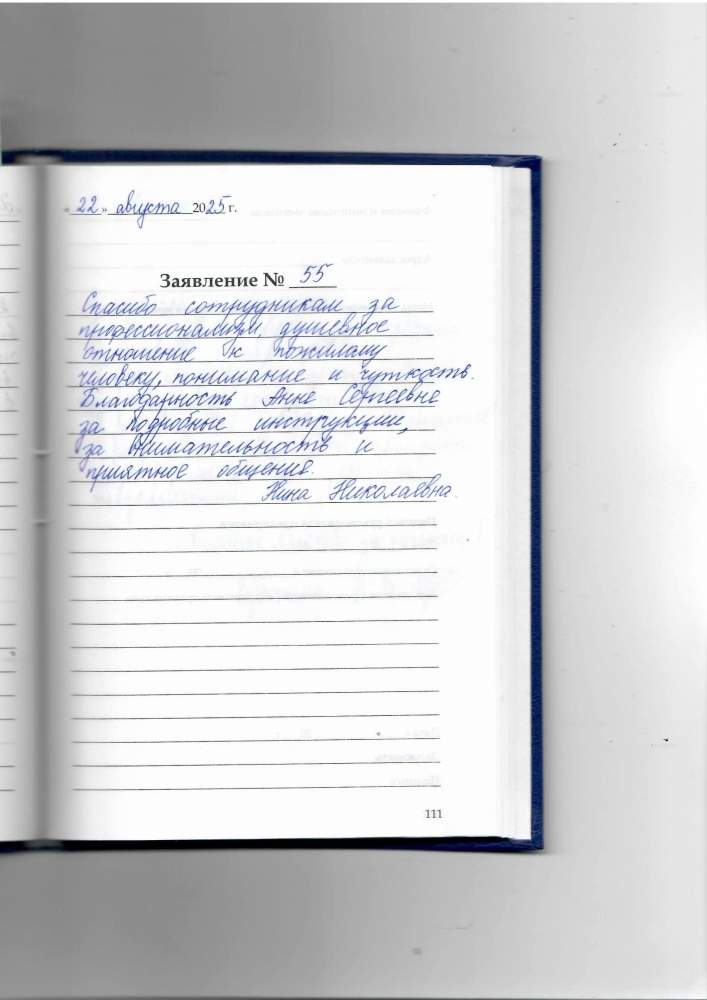 «22» августа 2025 г.
Заявление № 55
Спасибо сотрудникам за
профессионализм, душевное
отношение к пожилому
человеку, понимание и чуткость.
Благодарность Анне Сергеевне
за подробные инструкции,
за внимательность и
приятное общение.
Нина Николаевна.
111